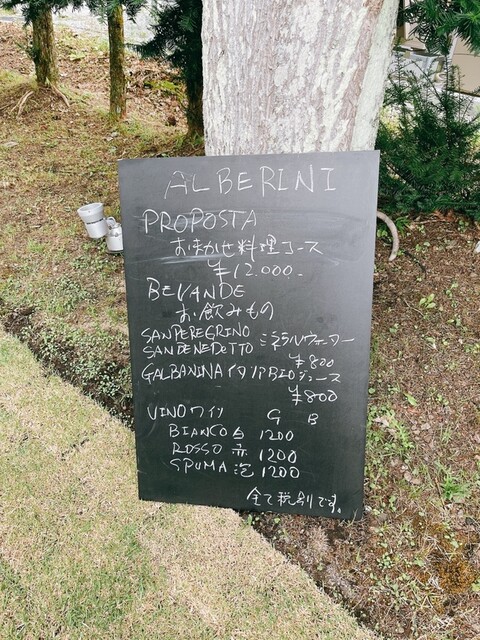 ALBERINI
PROPOSTA
おまかせ料理コース
¥12.000.-
BEVANDE
お飲みもの
SANPEREGRINO ミネラルウォーター
SANDENEDETTO ¥800
GALBANINA イタリアBIOジュース
¥800
VINO ワイン G B
BIANCO 白 1200
ROSSO 赤 1200
SPUMA 泡 1200
全て税別です。